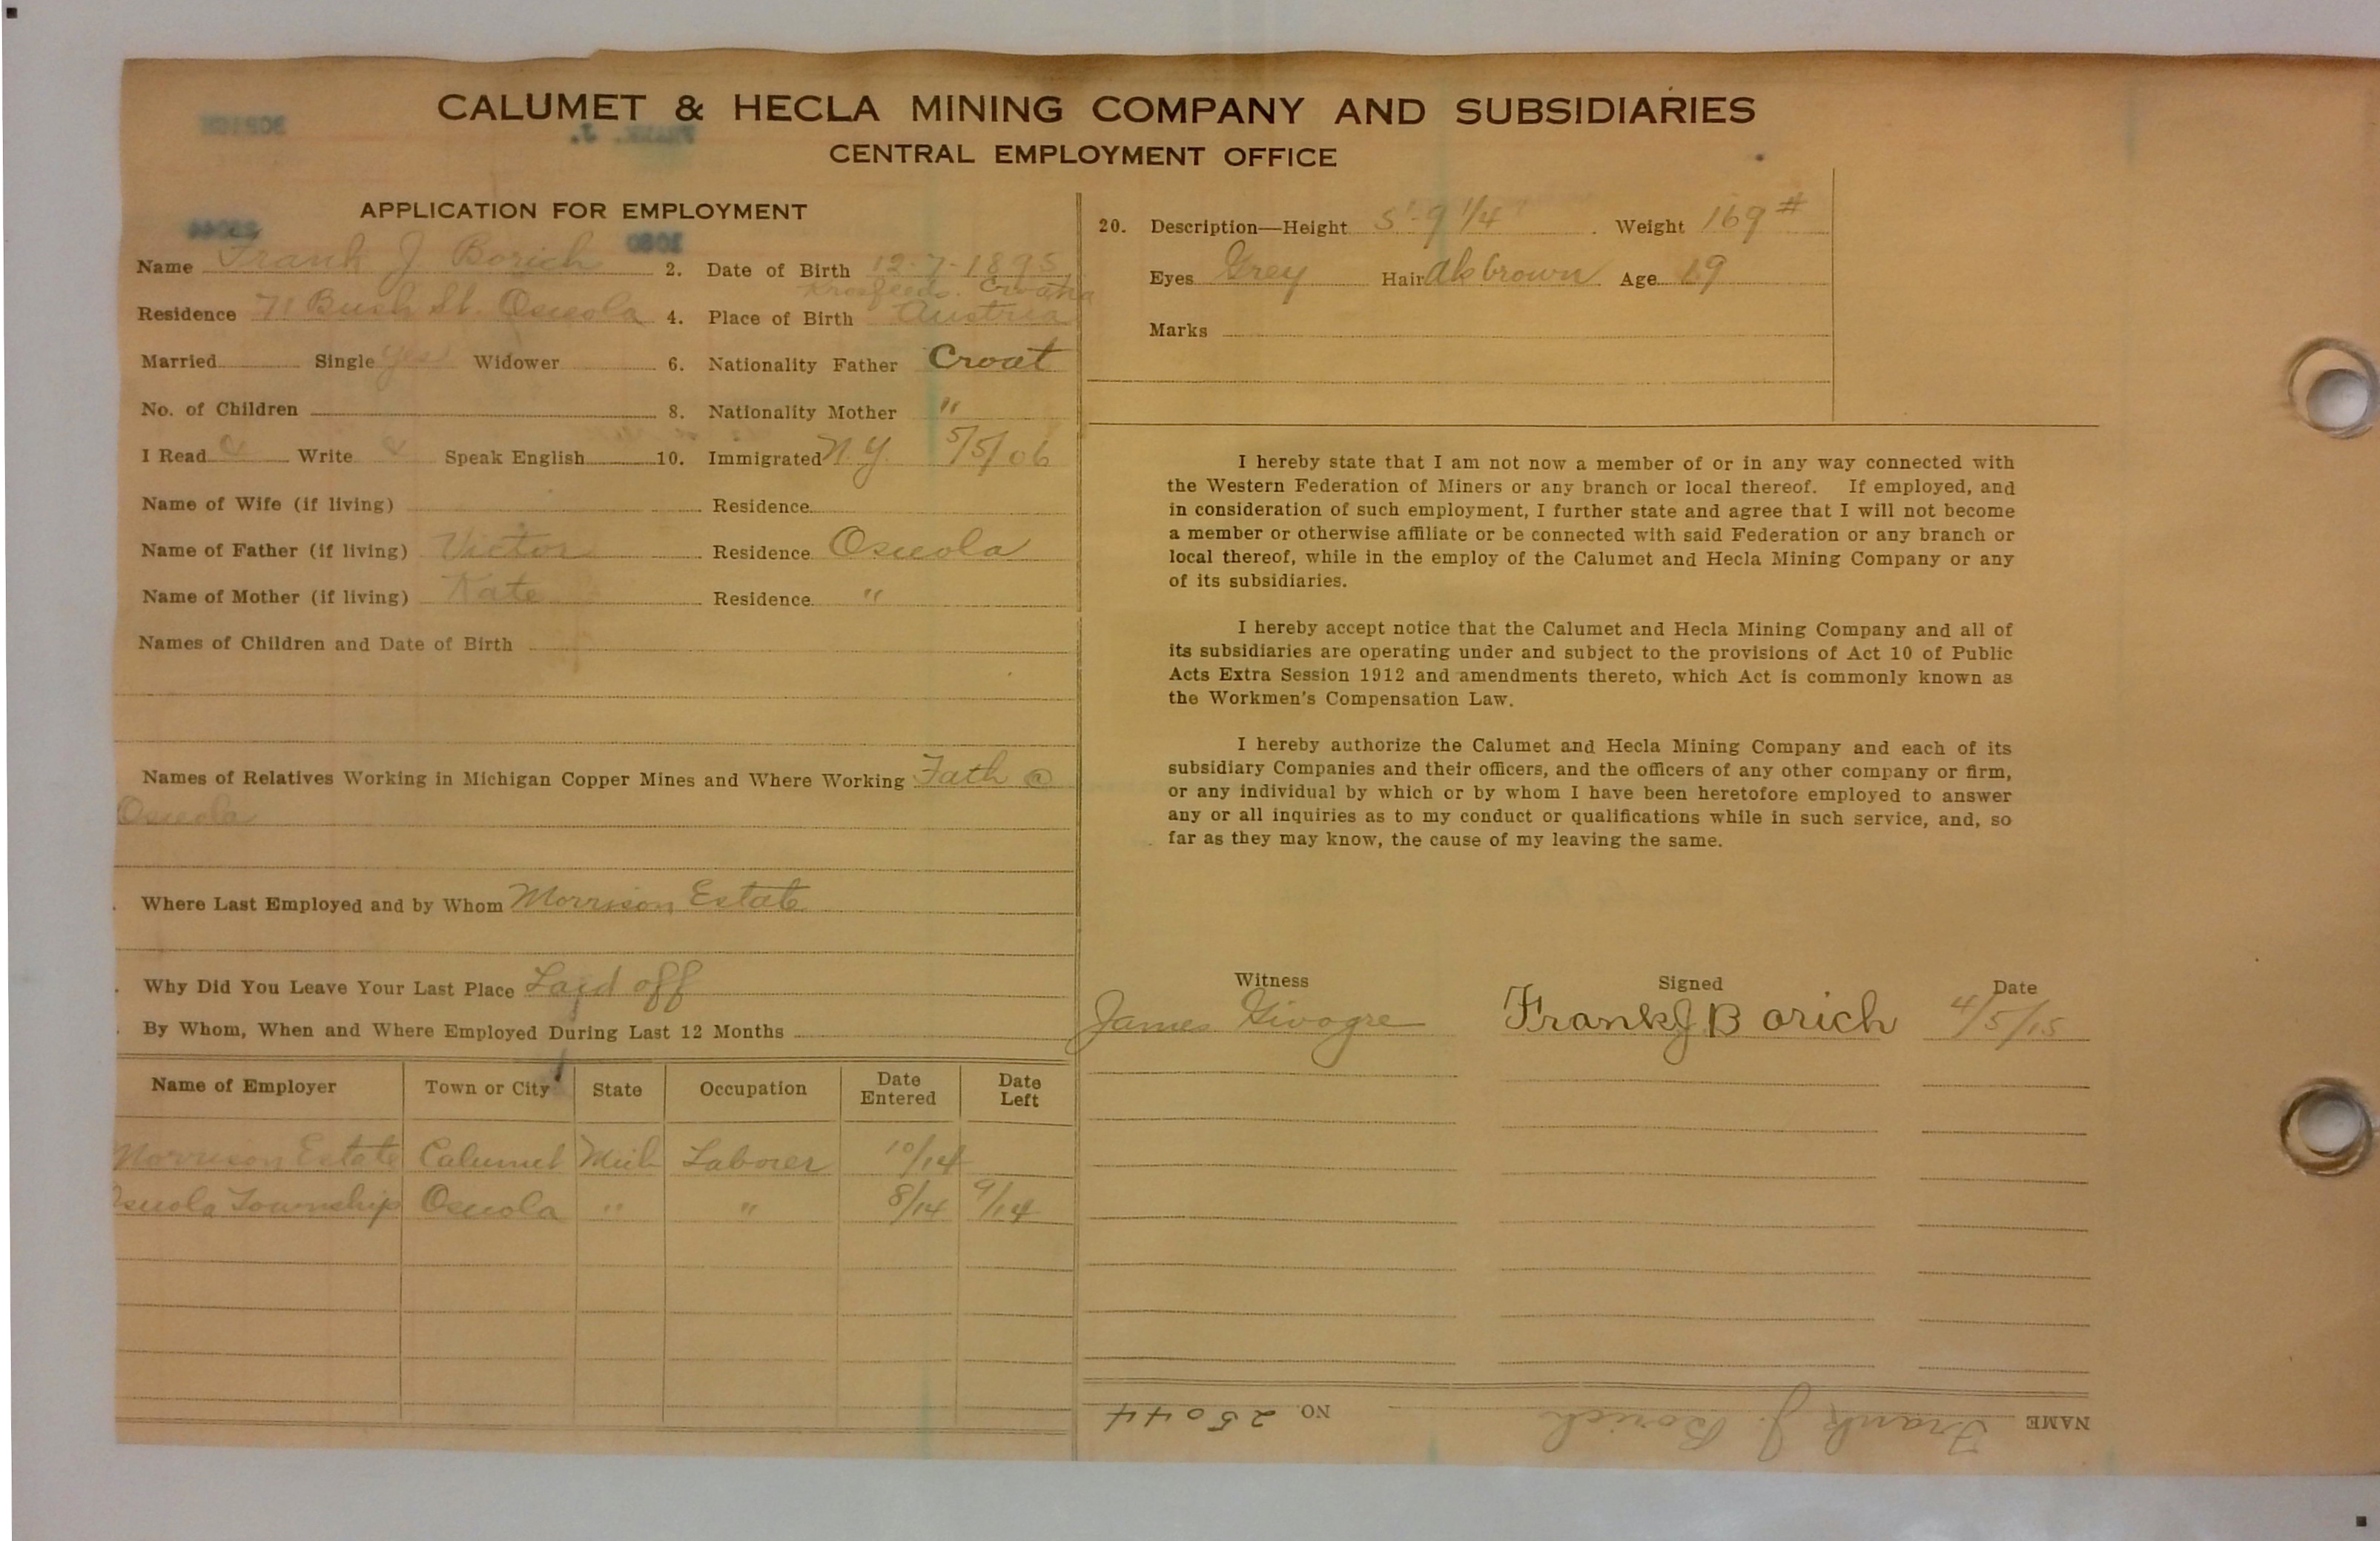 CALUMET & HECLA MINING COMPANY AND SUBSIDIARIES
CENTRAL EMPLOYMENT OFFICE
BORICH
FRANK. J.
APPLICATION FOR EMPLOYMENT
25044
1080
Name Frank J Borich 2. Date of Birth 12-7-1895
Residence 71 Bush St. Osceola 4. Place of Birth Austria
Married Single Yes Widower 6. Nationality Father Croat
No. of Children 8. Nationality Mother "
I Read Write Speak English 10. Immigrated N.Y. 5/5/06
Name of Wife (if living) Residence
Name of Father (if living) Victor Residence Osceola
Name of Mother (if living) Kate Residence "
Names of Children and Date of Birth
Names of Relatives Working in Michigan Copper Mines and Where Working Fath @
Osceola
Where Last Employed and by Whom Morrison Estate
Why Did You Leave Your Last Place Laid off
By Whom, When and Where Employed During Last 12 Months
Name of Employer Town or City State Occupation Date Entered Date Left
Morrison Estate Calumet Mich Laborer 10/14
Osceola Township Osceola " " 8/14 9/14
20. Description—Height 5'-9 1/4" Weight 169#
Eyes Grey Hair dk brown Age 19
Marks
I hereby state that I am not now a member of or in any way connected with
the Western Federation of Miners or any branch or local thereof. If employed, and
in consideration of such employment, I further state and agree that I will not become
a member or otherwise affiliate or be connected with said Federation or any branch or
local thereof, while in the employ of the Calumet and Hecla Mining Company or any
of its subsidiaries.
I hereby accept notice that the Calumet and Hecla Mining Company and all of
its subsidiaries are operating under and subject to the provisions of Act 10 of Public
Acts Extra Session 1912 and amendments thereto, which Act is commonly known as
the Workmen's Compensation Law.
I hereby authorize the Calumet and Hecla Mining Company and each of its
subsidiary Companies and their officers, and the officers of any other company or firm,
or any individual by which or by whom I have been heretofore employed to answer
any or all inquiries as to my conduct or qualifications while in such service, and, so
far as they may know, the cause of my leaving the same.
Witness Signed Date
James Frank J Borich 4/5/15
NAME Frank J. Borich NO 25044